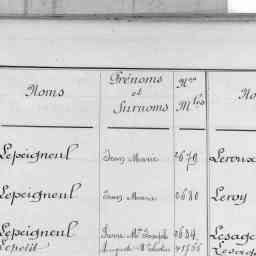 Noms Prénoms et Surnoms Nos Mles No
Lepeigneul Jean Marie 2679 Leroux
Lepeigneul Jean Marie 2680 Leroy
Lepeigneul Pierre Me Joseph 2684 Lesage
Lepetit Auguste